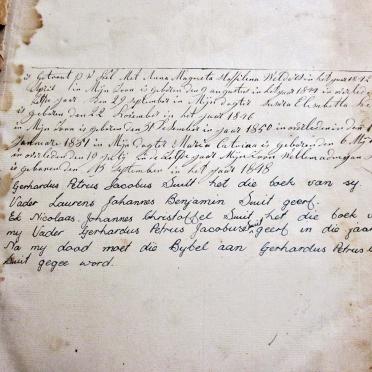 is Getrout p v Sal Met Anna Magreta Massilina Weldsts in het jaar 1842
April in Mijn Soon is geboren den 9 augustus in het jaar 1844 in overlede
zelfte jaar den 29 september in Mijn dogter Susara Elisabetta
is geboren den 22 November in het jaar 1846
in Mijn Soon is geboren den 31 Desember in jaar 1850 en overleden den
Januarie 1851 in Mijn dogter Maria Catrina is geboren den 6 Mij
in overleden den 10 july in zelfte jaar Mijn Soon
is geboren den 15 September in het jaar 1848
Gerhardus Petrus Jacobus Smit het die boek van sy
Vader Laurens Johannes Benjamin Smit geerf.
Ek Nicolaas Johannes Christoffel Smit, het die boek
my Vader Gerhardus Petrus Jacobus Smit geerf in die jaar
Na my dood moet die Bybel aan Gerhardus Petrus
Smit gegee word.